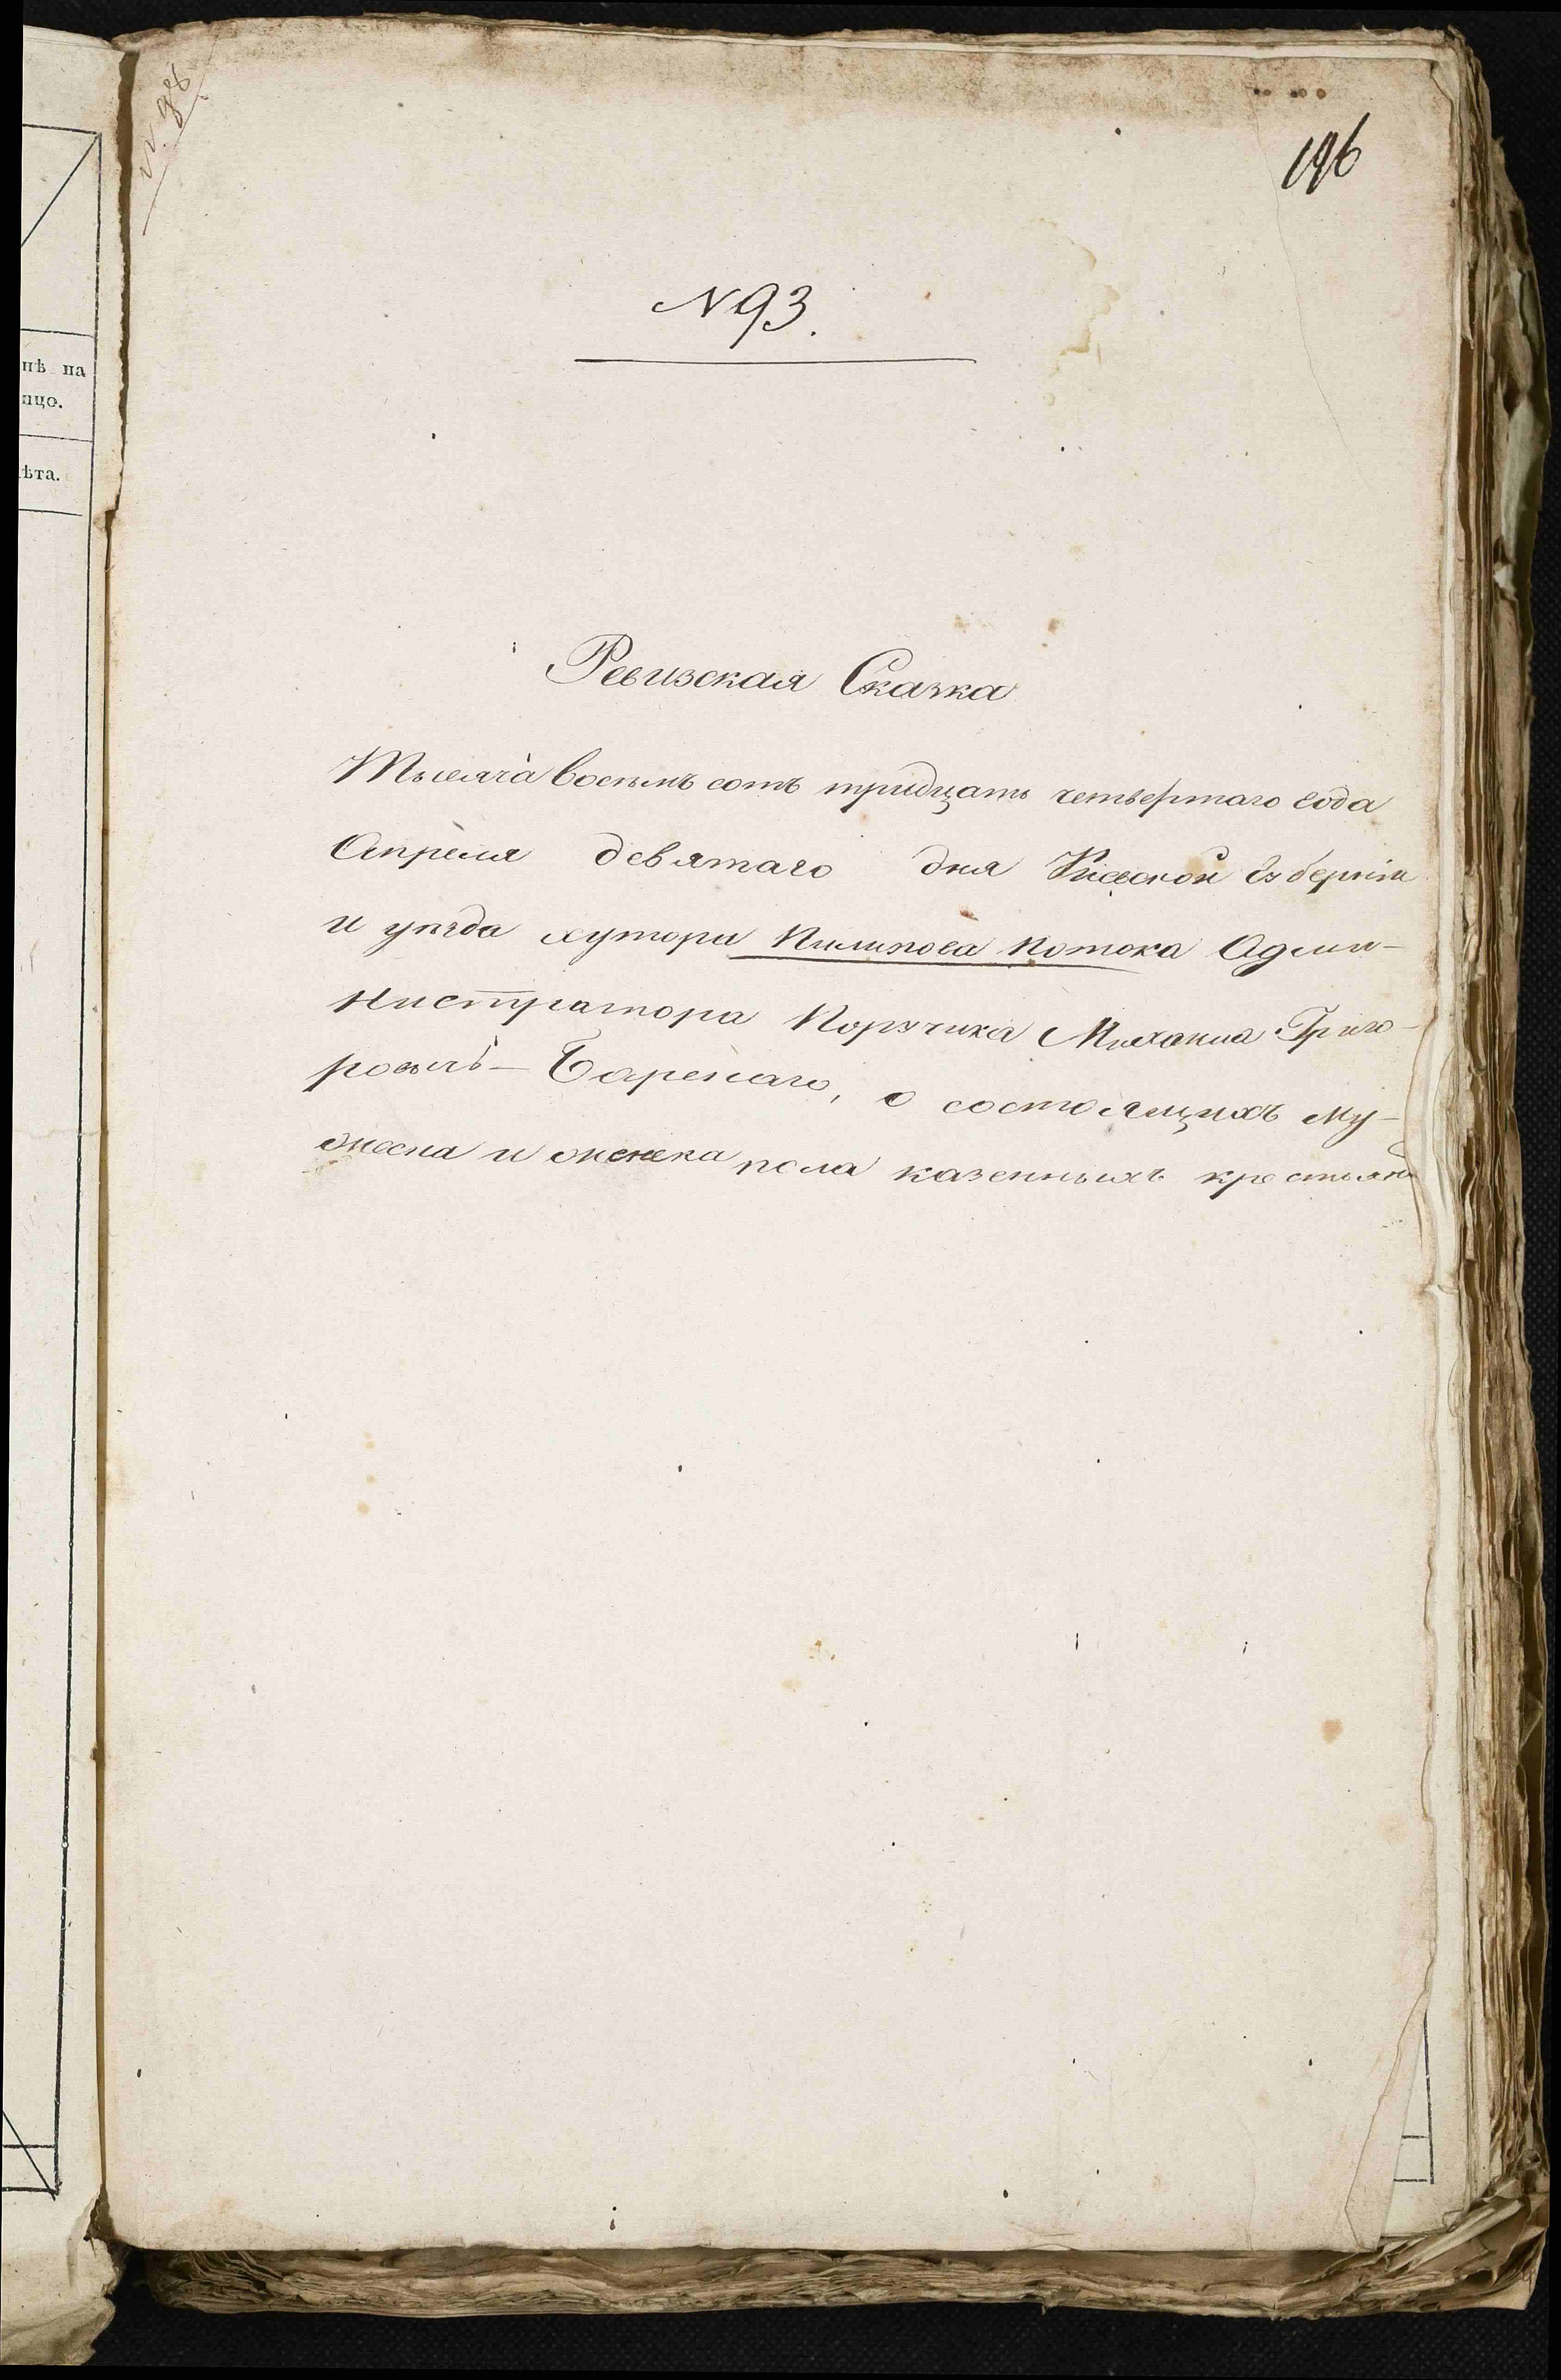 N 98
196
N 93.
нѣ на
цо.
ѣта.
Ревизская Сказка
Тысяча восемь сотъ тридцать четвертаго года
Апреля девятаго дня Киевской Губерніи
и уѣзда хутора Пилипова Потока Адми-
нистратора Поручика Михаила Григо-
ровичъ-Барскаго, о состоящихъ му-
жеска и женска пола казенныхъ крестьянъ